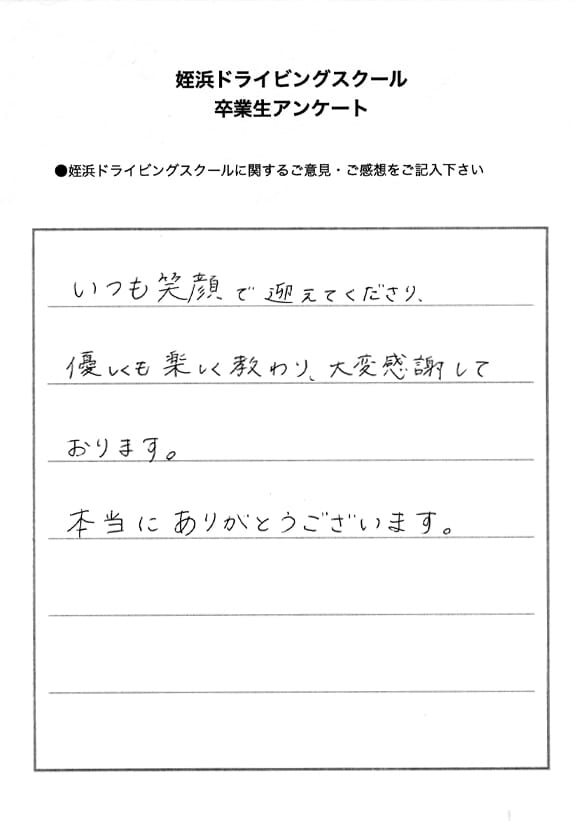 姪浜ドライビングスクール
卒業生アンケート
●姪浜ドライビングスクールに関するご意見・ご感想をご記入下さい
いつも笑顔で迎えてくださり、
優しくも楽しく教わり、大変感謝して
おります。
本当にありがとうございます。